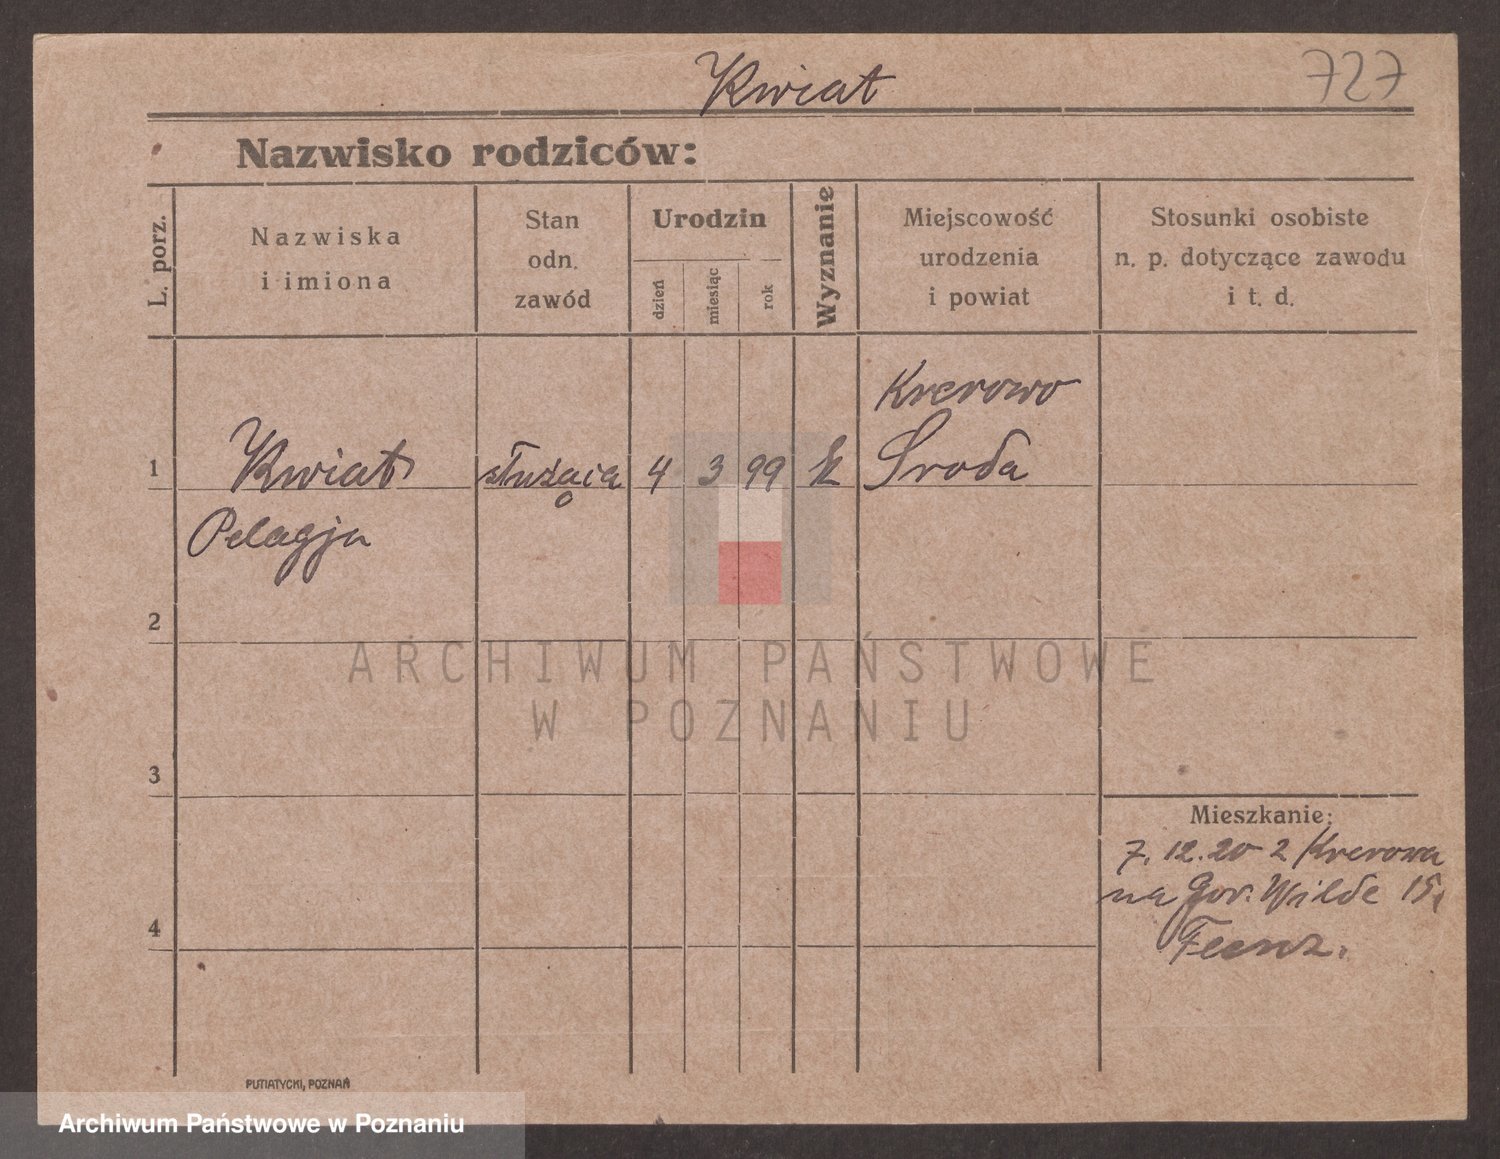 Kwiat
727
Nazwisko rodziców:
L. porz.
Nazwiska
i imiona
Stan
odn.
zawód
Urodzin
dzień
miesiąc
rok
Wyznanie
Miejscowość
urodzenia
i powiat
Stosunki osobiste
n. p. dotyczące zawodu
i t. d.
Krerowo
1 Kwiat służąca 4 3 99 k Środa
Pelagja
2
ARCHIWUM PAŃSTWOWE
W POZNANIU
3
Mieszkanie:
7. 12. 20 z Krerowa
na Gór. Wilde 15,
4
PUTIATYCKI, POZNAŃ
Archiwum Państwowe w Poznaniu